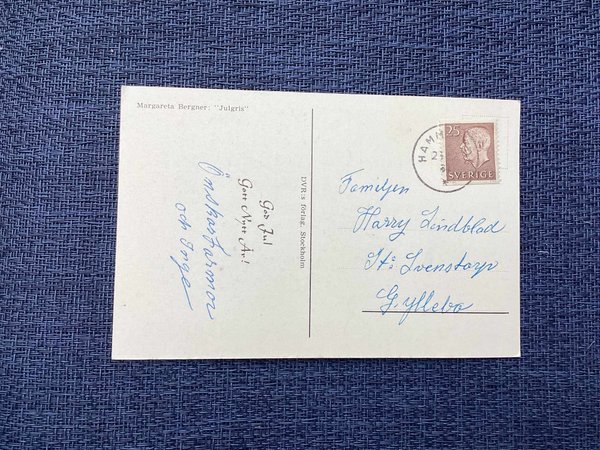 Margareta Bergner: "Julgris"
God Jul
Gott Nytt År!
Önskar Farmor
och Inge
DVR:s förlag, Stockholm
HAMM
25
SVERIGE
Familjen
Harry Lindblad
St: Svenstorp
Gyllebo